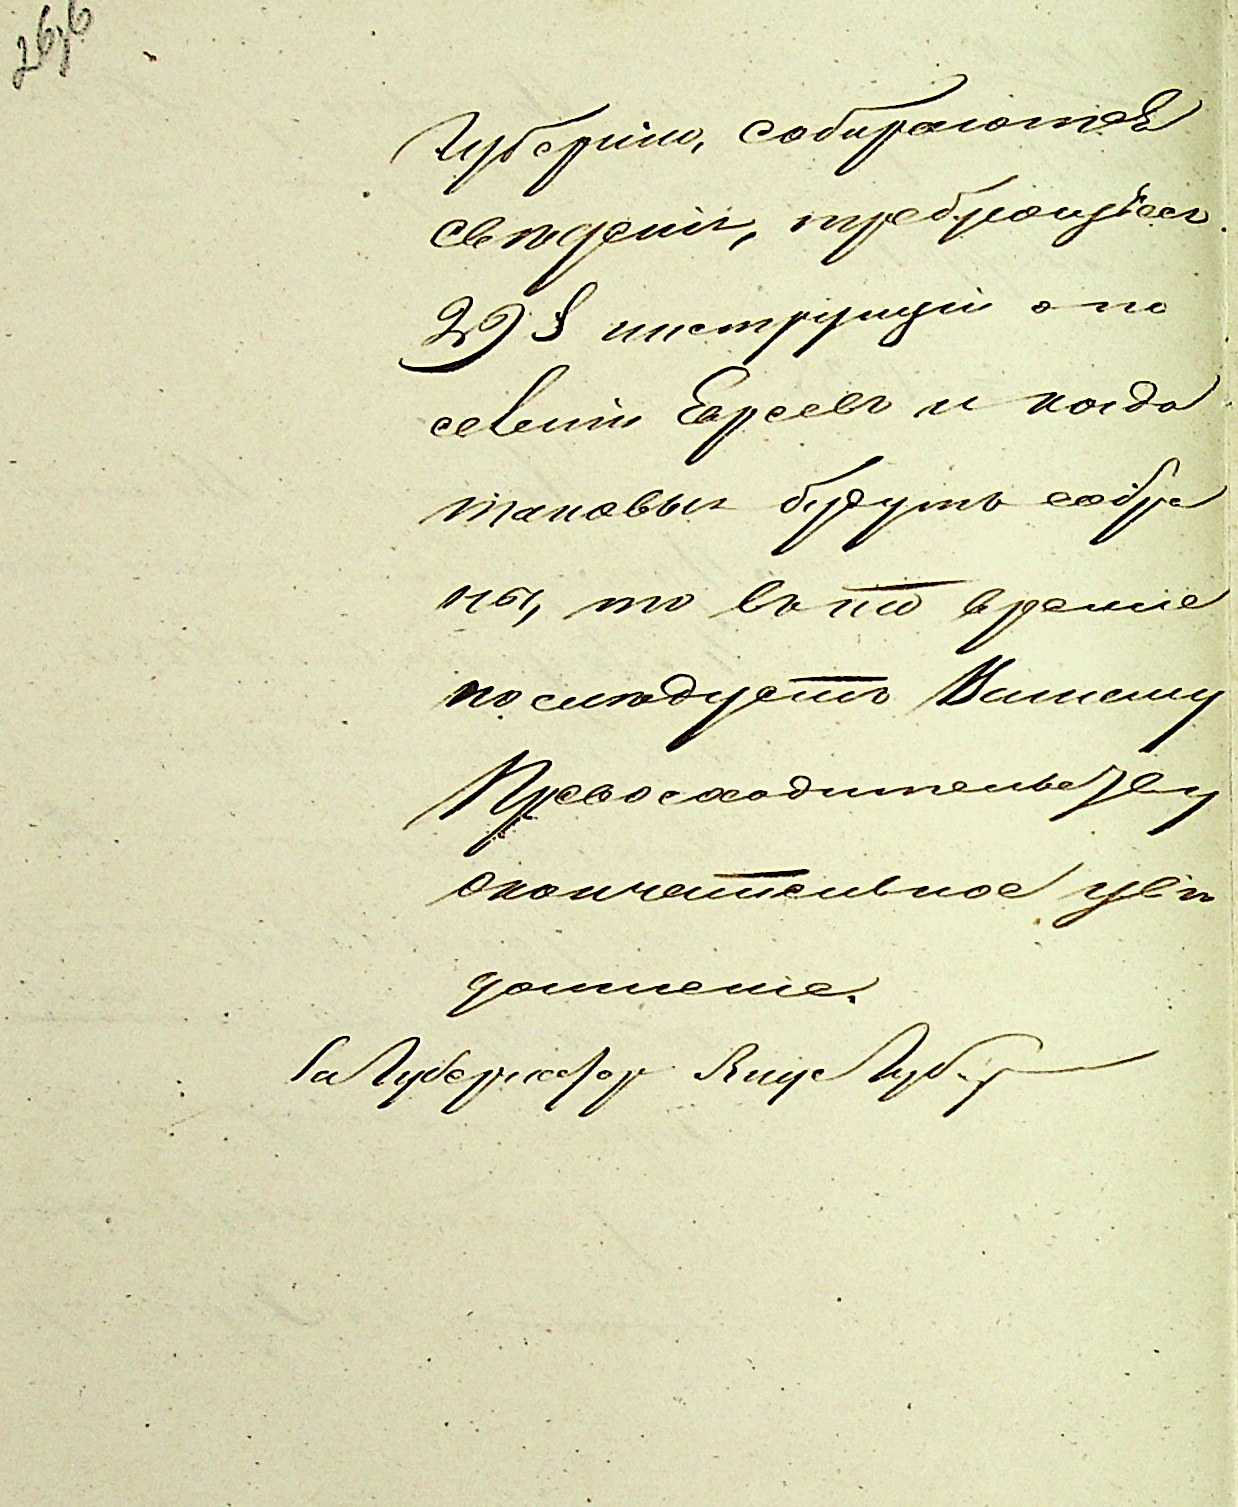 26,6
Губернію, собираются
свѣденія, требующіеся
29 § инструкціи о по
селеніи Евреевъ и когда
таковыя будутъ собра
ны, то въ то время
послѣдуетъ Вашему
Превосходительству
окончательное увѣ
домленіе.
За Губернатора Вице Губер